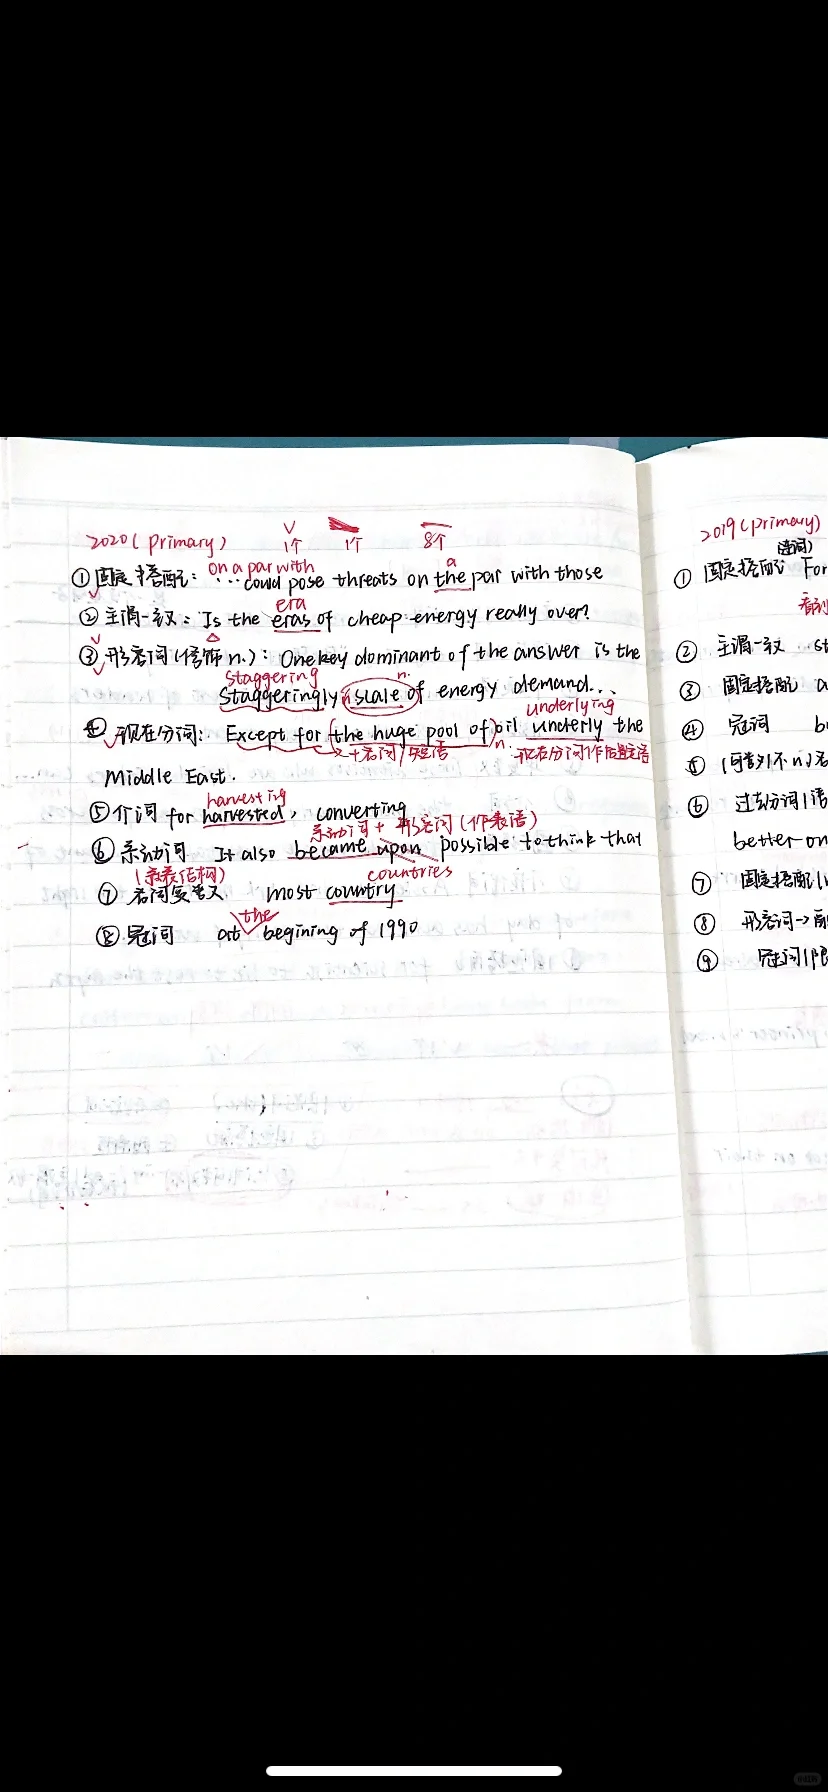 2020(primary)
1个 1个 8个
on a par with a
①固定搭配: ...could pose threats on the par with those
era
②主谓一致: Is the eras of cheap energy really over?
③形容词(修饰n.): One key dominant of the answer is the
staggering n.
staggeringly scale of energy demand...
underlying
④现在分词: Except for (the huge pool of) oil underly the
+名词/短语 n. 现在分词作后置定语
Middle East.
harvesting
⑤介词 for harvested, converting
系动词+形容词(作表语)
⑥系动词 It also became upon possible to think that
(系表结构) countries
⑦名词复数 most country
the
⑧冠词 at begining of 1990
2019(primary)
(连词)
①固定搭配 For
②主谓一致 st
③固定搭配 a
④冠词 b
⑤
⑥过去分词
better on
⑦固定搭配
⑧形容词→
⑨冠词